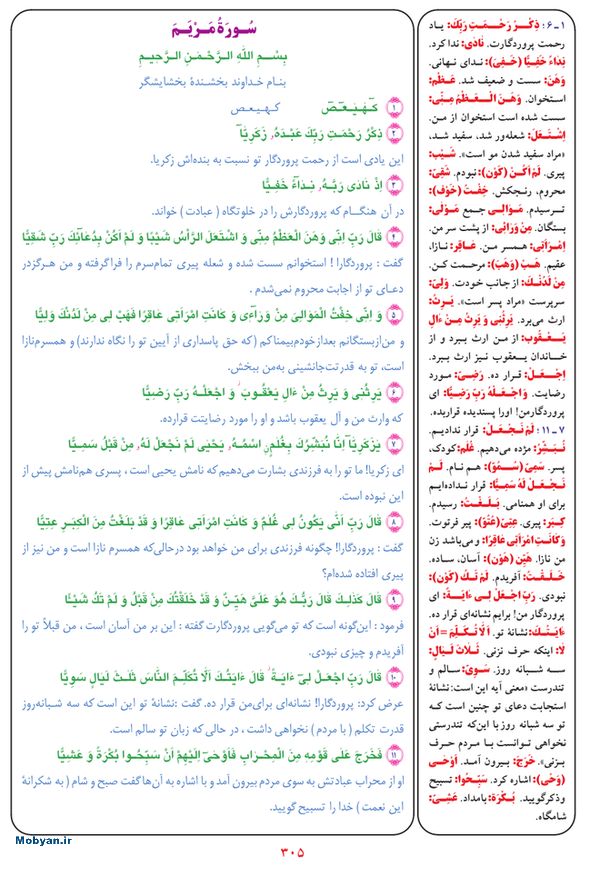 سُورَةُ مَرْیَمَ
بِسْمِ اللهِ الرَّحْمٰنِ الرَّحیمِ
بنام خداوند بخشندهٔ بخشایشگر
۱ کٓهٰیٰعٓصٓ کـهـیـعـص
۲ ذِکْرُ رَحْمَتِ رَبِّكَ عَبْدَهُ, زَکَرِیّٰآ
این یادی است از رحمت پروردگار تو نسبت به بنده‌اش زکریا.
۳ اِذْ نادٰی رَبَّهُ, نِدآءً خَفِیًّا
در آن هنگـام که پروردگارش را در خلوتگاه (عبادت) خواند.
۴ قالَ رَبِّ اِنّی وَهَنَ الْعَظْمُ مِنّی وَ اشْتَعَلَ الرَّأْسُ شَیْبًا وَ لَمْ اَکُنْ بِدُعآئِكَ رَبِّ شَقِیًّا
گفت : پروردگارا ! استخوانم سست شده و شعله پیری تمام‌سرم را فراگرفته و من هرگزدر
دعـای تو از اجابت محروم نمی‌شدم .
۵ وَ اِنّی خِفْتُ الْمَوالِیَ مِنْ وَرآءی وَ کانَتِ امْرَاَتی عاقِرًا فَهَبْ لی مِنْ لَدُنْكَ وَلِیًّا
و من‌ازبستگانم بعدازخودم‌بیمناکم (که حق پاسداری از آیین تو را نگاه ندارند) و همسرم‌نازا
است، تو به قدرتت‌جانشینی به‌من ببخش.
۶ یَرِثُنی وَ یَرِثُ مِنْ ءٰالِ یَعْقُوبَ وَ اجْعَلْهُ رَبِّ رَضِیًّا
که وارث من و آل یعقوب باشد و او را مورد رضایتت قرارده.
۷ یٰزَکَرِیّآ اِنّا نُبَشِّرُكَ بِغُلٰمٍ اسْمُهُ, یَحْییٰ لَمْ نَجْعَلْ لَهُ, مِنْ قَبْلُ سَمِیًّا
ای زکریا! ما تو را به فرزندی بشارت می‌دهیم که نامش یحیی است ، پسری هم‌نامش پیش از
این نبوده است.
۸ قالَ رَبِّ اَنّٰی یَکُونُ لی غُلٰمٌ وَ کانَتِ امْرَاَتی عاقِرًا وَ قَدْ بَلَغْتُ مِنَ الْکِبَرِ عِتِیًّا
گفت : پروردگارا! چگونه فرزندی برای من خواهد بود درحالی‌که همسرم نازا است و من نیز از
پیری افتاده شده‌ام؟
۹ قالَ کَذٰلِكَ قالَ رَبُّكَ هُوَ عَلَیَّ هَیِّنٌ وَ قَدْ خَلَقْتُكَ مِنْ قَبْلُ وَ لَمْ تَكُ شَیْئًا
فرمود : این‌گونه است که تو می‌گویی پروردگارت گفته : این بر من آسان است ، من قبلاً تو را
آفریدم و چیزی نبودی.
۱۰ قالَ رَبِّ اجْعَلْ لی ءٰایَةً قالَ ءٰایَتُكَ اَلّا تُکَلِّمَ النّاسَ ثَلٰثَ لَیالٍ سَوِیًّا
عرض کرد: پروردگارا! نشانه‌ای برای‌من قرار ده. گفت :نشانهٔ تو این است که سه شبانه‌روز
قدرت تکلم ( با مردم ) نخواهی داشت ، در حالی که زبان تو سالم است.
۱۱ فَخَرَجَ عَلٰی قَوْمِهِ مِنَ الْمِحْرابِ فَاَوْحٰی اِلَیْهِمْ اَنْ سَبِّحُوا بُکْرَةً وَ عَشِیًّا
او از محراب عبادتش به سوی مردم بیرون آمد و با اشاره به آن‌ها گفت صبح و شام ( به شکرانهٔ
این نعمت ) خدا را تسبیح گویید.
۱ـ۶: ذِکْرُ رَحْمَتِ رَبِّكَ: یـاد
رحمت پروردگارت. نادٰی: ندا کرد.
نِداءً خَفِیًّا (خَفِیَ): ندای نهانی.
وَهَنَ: سست و ضعیف شد. عَظْم:
استخوان. وَهَنَ الْعَظْمُ مِنّی:
سست شده است استخوان از من.
اِشْتَعَلَ: شعله‌ور شد، سفید شد،
«مراد سفید شدن مو است». شَیْب:
پیری. لَمْ اَکُنْ (کَوْن): نبودم. شَقِیّ:
محروم، رنجکش. خِفْتُ (خَوْف):
ترسیدم. مَوالی جمع مَوْلٰی:
بستگان. مِنْ وَرائی: از پشت سر من.
اِمْرَاَتی: همسر من. عاقِر: نازا،
عقیم. هَبْ (وَهْب): مرحمت کن.
مِنْ لَدُنْكَ: از جانب خودت. وَلِیّ:
سرپرست «مراد پسر است». یَرِثُ:
ارث می‌برد. یَرِثُنی وَ یَرِثُ مِنْ ءٰالِ
یَعْقُوبَ: از من ارث ببرد و از
خاندان یعقوب نیز ارث ببرد.
اِجْعَلْ: قرار ده. رَضِیّ: مورد
رضایت. وَ اجْعَلْهُ رَبِّ رَضِیًّا: ای
پروردگارمن! اورا پسندیده قراربده.
۷ـ۱۱: لَمْ نَجْعَلْ: قرار ندادیم.
نُبَشِّرُ: مژده می‌دهیم. غُلٰم: کودک،
پسر. سَمِیّ (سُمُوّ): هم نام. لَمْ
نَجْعَلْ لَهُ سَمِیًّا: قرار نداده‌ایم
برای او همنامی. بَلَغْتُ: رسیدم.
کِبَر: پیری. عِتِیّ (عُتُوّ): پیر فرتوت.
وَ کانَتِ امْرَاَتی عاقِرًا: و می‌باشد زن
من نازا. هَیِّن (هَوْن): آسان، ساده.
خَلَقْتُ: آفریدم. لَمْ تَكُ (کَوْن):
نبودی. رَبِّ اجْعَلْ لی ءٰایَةً: ای
پروردگار من! برایم نشانه‌ای قرار ده.
ءٰایَتُكَ: نشانهٔ تو. اَلّا تُکَلِّمَ = اَنْ
لا: اینکه حرف نزنی. ثَلاثَ لَیالٍ:
سـه شبـانه روز. سَوِیّ: سـالم و
تندرست «معنی آیه این است: نشانهٔ
استجابت دعای تو چنین است کـه
تو سه شبانه روز با این‌که تندرستی
نخواهی توانست با مـردم حرف
بزنی». خَرَجَ: بیرون آمـد. اَوْحٰی
(وَحْی): اشاره کرد. سَبِّحُوا: تسبیح
وذکرگویید. بُکْرَة: بامداد. عَشِیّ:
شامگاه.
۳۰۵
Mobyan.ir